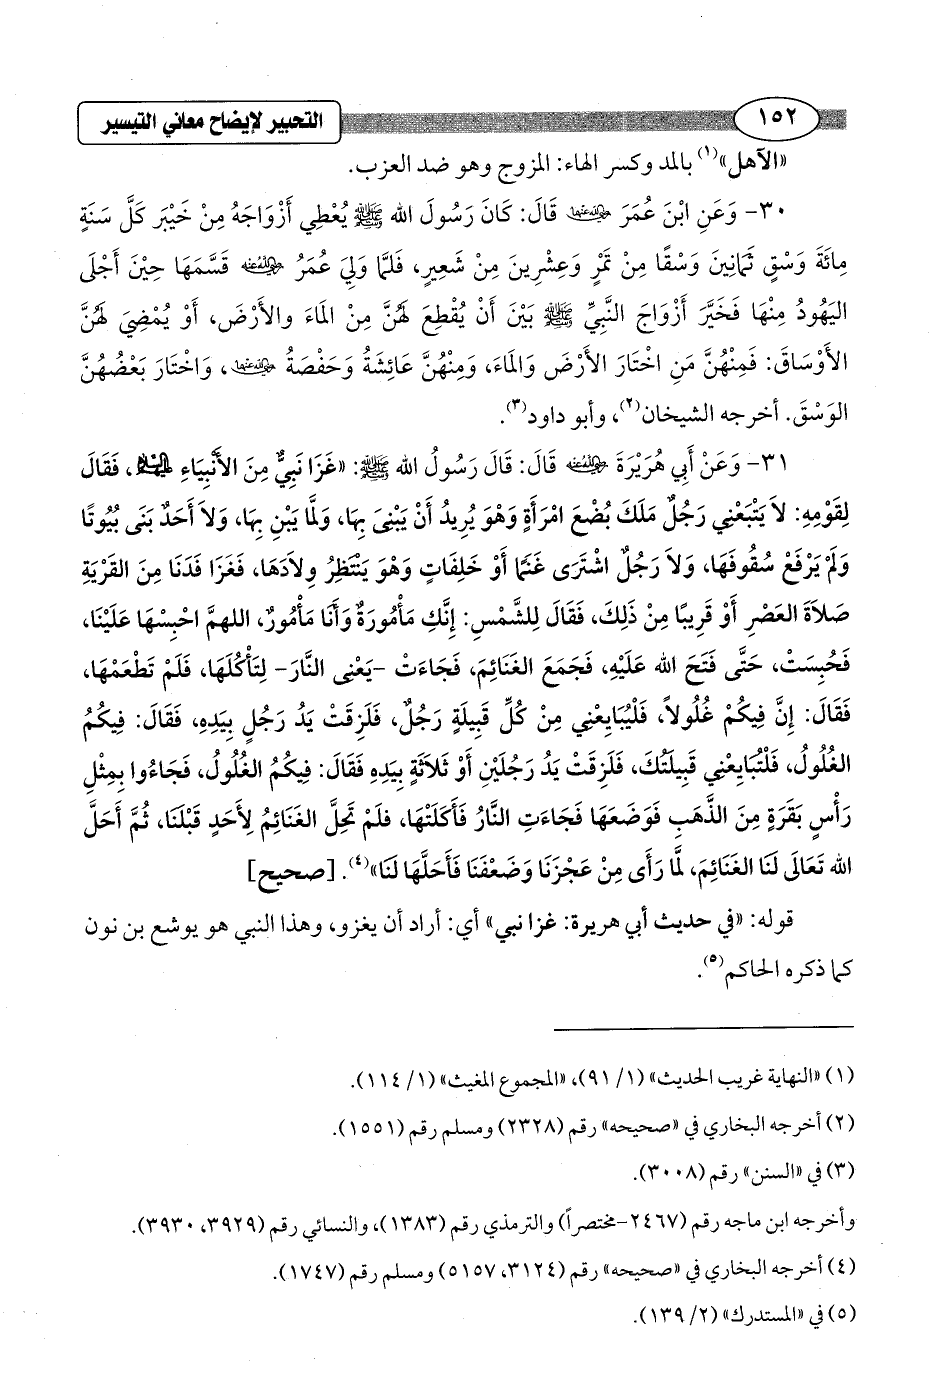 ١٥٢ التحبير لإيضاح معاني التيسير
«الآهل»(١) بالمد وكسر الهاء: المزوج وهو ضد العزب.
٣٠- وَعَنِ ابْنِ عُمَرَ رضي الله عنهما قَالَ: كَانَ رَسُولَ الله ﷺ يُعْطِي أَزْوَاجَهُ مِنْ خَيْبَر كَلَّ سَنَةٍ
مِائَةَ وَسْقٍ ثَمَانِينَ وَسْقًا مِنْ تَمْرٍ وَعِشْرِينَ مِنْ شَعِيرٍ، فَلَمَّا وَلِيَ عُمَرُ رضي الله عنه قَسَّمَهَا حِيْنَ أَجْلَى
اليَهُودُ مِنْهَا فَخَيَّرَ أَزْوَاجَ النَّبِيِّ ﷺ بَيْنَ أَنْ يُقْطِعَ لَهُنَّ مِنْ المَاءَ والأَرْضَ، أَوْ يُمْضِيَ لَهُنَّ
الأَوْسَاقَ: فَمِنْهُنَّ مَنِ اخْتَارَ الأَرْضَ وَالمَاءَ، وَمِنْهُنَّ عَائِشَةُ وَحَفْصَةُ رضي الله عنهما، وَاخْتَارَ بَعْضُهُنَّ
الوَسْقَ. أخرجه الشيخان(٢)، وأبو داود(٣).
٣١- وَعَنْ أَبِي هُرَيْرَةَ رضي الله عنه قَالَ: قَالَ رَسُولُ الله ﷺ: «غَزَا نَبِيٌّ مِنَ الأَنْبِيَاءِ عليهم السلام، فَقَالَ
لِقَوْمِهِ: لاَ يَتْبَعْنِي رَجُلٌ مَلَكَ بُضْعَ امْرَأَةٍ وَهُوَ يُرِيدُ أَنْ يَبْنَىَ بِهَا، وَلَمَّا يَبْنِ بِهَا، وَلاَ أَحَدٌ بَنَى بُيُوتًا
وَلَمْ يَرْفَعْ سُقُوفَهَا، وَلاَ رَجُلٌ اشْتَرَى غَنَمًا أَوْ خَلِفَاتٍ وَهْوَ يَنْتَظِرُ وِلاَدَهَا، فَغَزَا فَدَنَا مِنَ القَرْيَةِ
صَلاَةَ العَصْرِ أَوْ قَرِيبًا مِنْ ذَلِكَ، فَقَالَ لِلشَّمْسِ: إِنَّكِ مَأْمُورَةٌ وَأَنَا مَأْمُورٌ، اللهمَّ احْبِسْهَا عَلَيْنَا،
فَحُبِسَتْ، حَتَّى فَتَحَ الله عَلَيْهِ، فَجَمَعَ الغَنَائِمَ، فَجَاءَتْ -يَعْنِى النَّارَ- لِتَأْكُلَهَا، فَلَمْ تَطْعَمْهَا،
فَقَالَ: إِنَّ فِيكُمْ غُلُولاً، فَلْيُبَايِعْنِي مِنْ كُلِّ قَبِيلَةٍ رَجُلٌ، فَلَزِقَتْ يَدُ رَجُلٍ بِيَدِهِ، فَقَالَ: فِيكُمُ
الغُلُولُ، فَلْتُبَايِعْنِي قَبِيلَتُكَ، فَلَزِقَتْ يَدُ رَجُلَيْنِ أَوْ ثَلاَثَةٍ بِيَدِهِ فَقَالَ: فِيكُمُ الغُلُولُ، فَجَاءُوا بِمِثْلِ
رَأْسِ بَقَرَةٍ مِنَ الذَّهَبِ فَوَضَعَهَا فَجَاءَتِ النَّارُ فَأَكَلَتْهَا، فَلَمْ تَحِلَّ الغَنَائِمُ لِأَحَدٍ قَبْلَنَا، ثُمَّ أَحَلَّ
الله تَعَالَى لَنَا الغَنَائِمَ، لَمَّا رَأَى مِنْ عَجْزَنَا وَضَعْفَنَا فَأَحَلَّهَا لَنَا»(٤). [صحيح]
قوله: «في حديث أبي هريرة: غزا نبي» أي: أراد أن يغزو، وهذا النبي هو يوشع بن نون
كما ذكره الحاكم(٥).
(١) «النهاية غريب الحديث» (١/ ٩١)، «المجموع المغيث» (١/ ١١٤).
(٢) أخرجه البخاري في «صحيحه» رقم (٢٣٢٨) ومسلم رقم (١٥٥١).
(٣) في «السنن» رقم (٣٠٠٨).
وأخرجه ابن ماجه رقم (٢٤٦٧-مختصراً) والترمذي رقم (١٣٨٣)، والنسائي رقم (٣٩٢٩، ٣٩٣٠).
(٤) أخرجه البخاري في «صحيحه» رقم (٣١٢٤، ٥١٥٧) ومسلم رقم (١٧٤٧).
(٥) في «المستدرك» (٢/ ١٣٩).